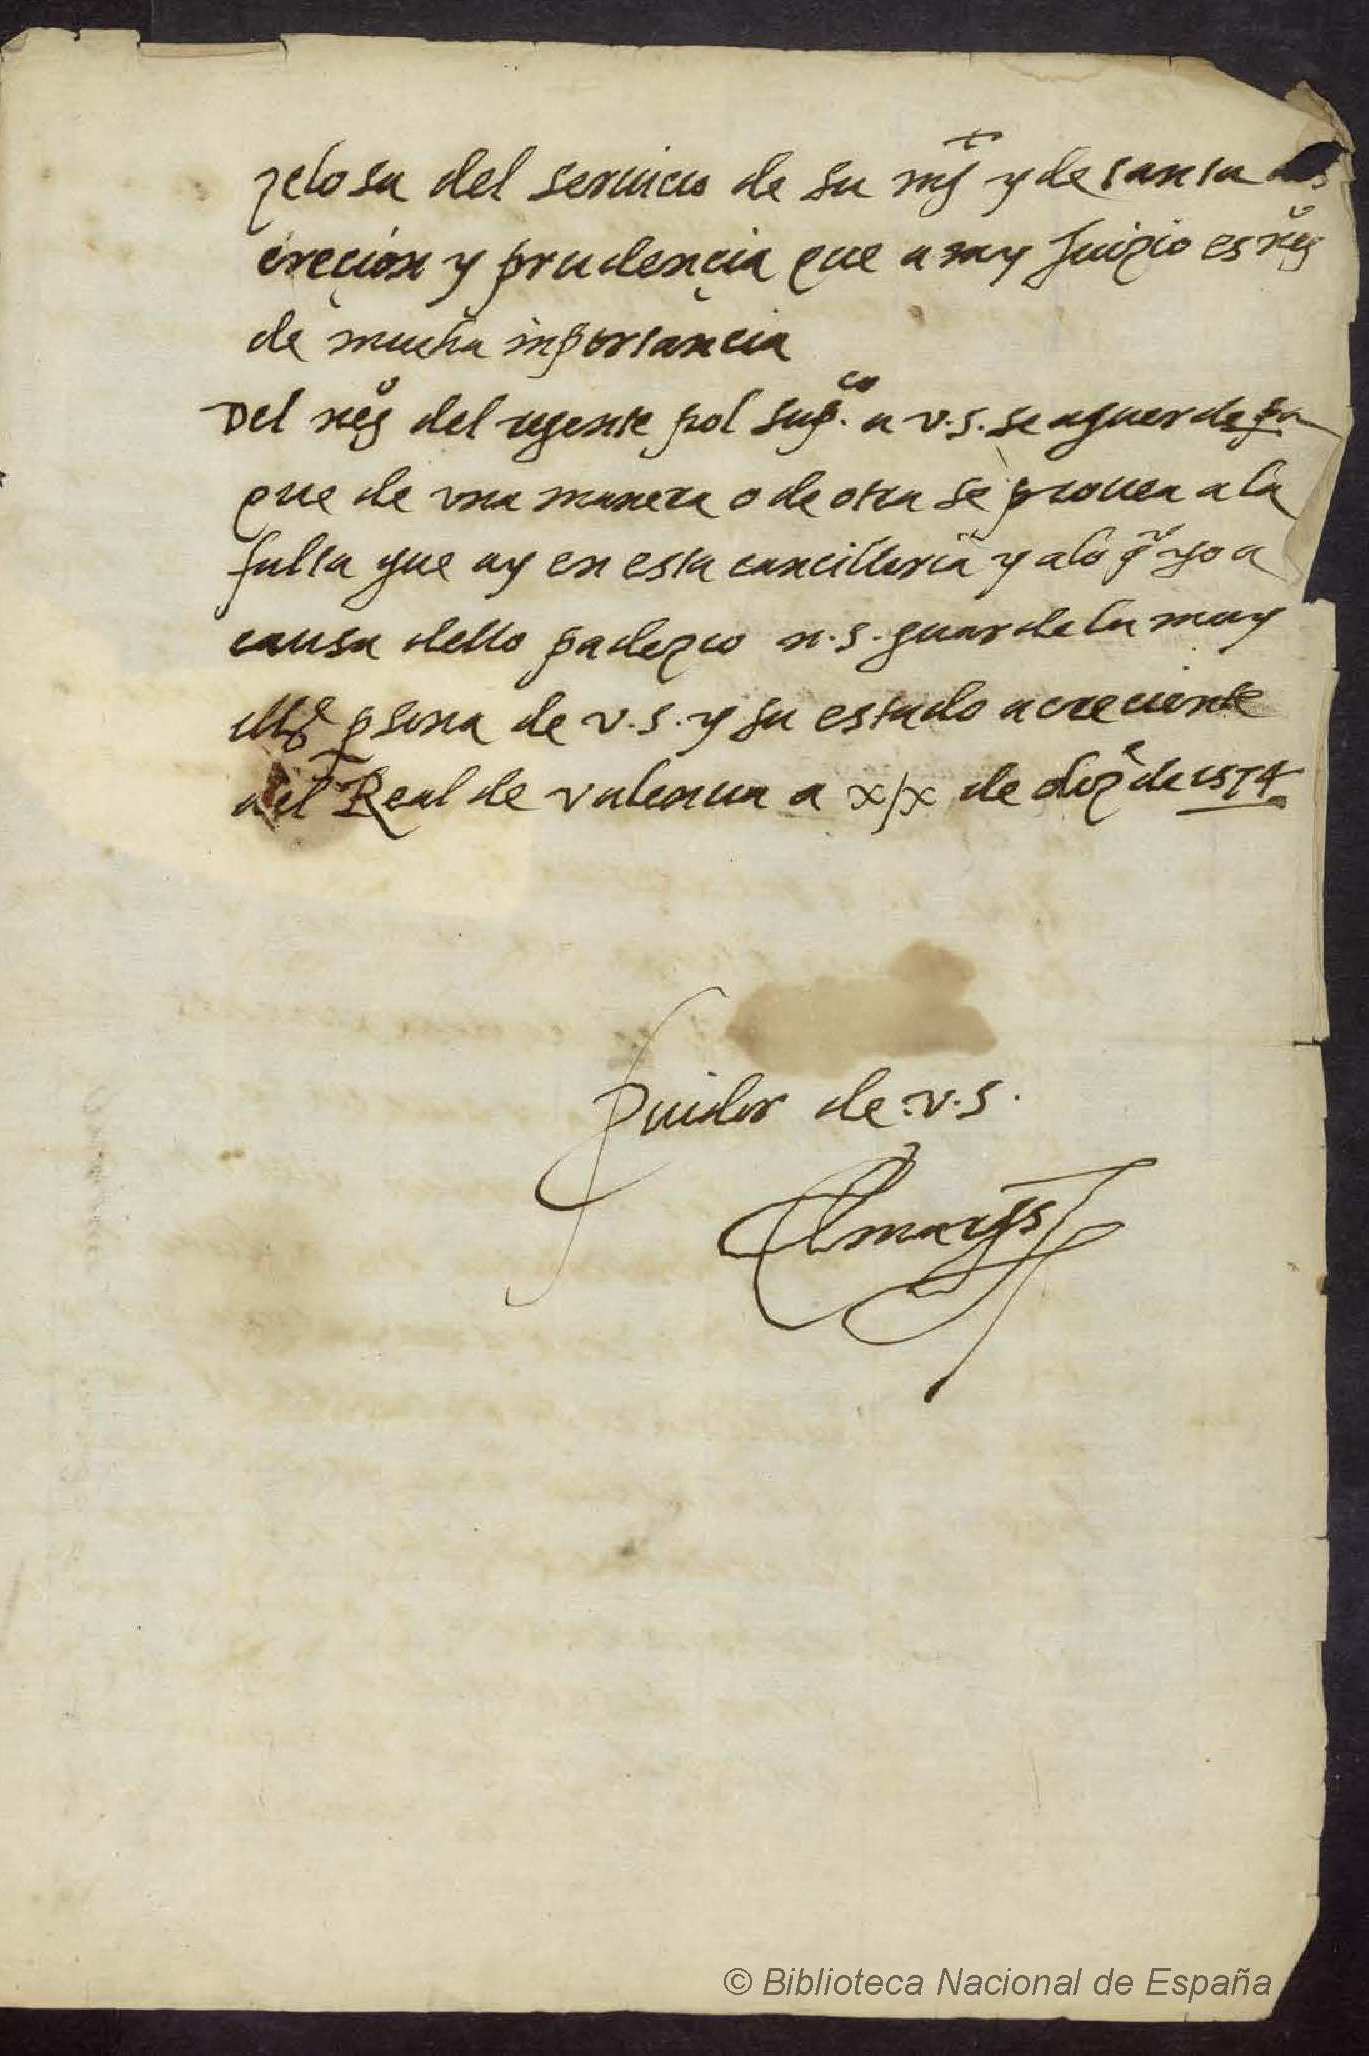 zelosa del seruicio de su mgt y de tanta dis
creçion y prudençia que a my Juizio es nego
de mucha importançia
Del nego del regente pol supco. a v.s. se aguerde pa
que de vna manera o de otra se prouea a la
falta que ay en esta cancilleria y a lo q yo a
causa dello padezco n.s. guarde la muy
Ille psona de v.s. y su estado acreciente
del Real de valencia a xix de dize de 1574
Seruidor de .v.s.
El marqs
© Biblioteca Nacional de España